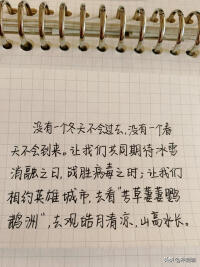 没有一个冬天不会过去,没有一个春
天不会到来。让我们共同期待冰雪
消融之日,战胜病毒之时;让我们
相约英雄城市,去看“芳草萋萋鹦
鹉洲”,去观皓月清凉,山高水长。